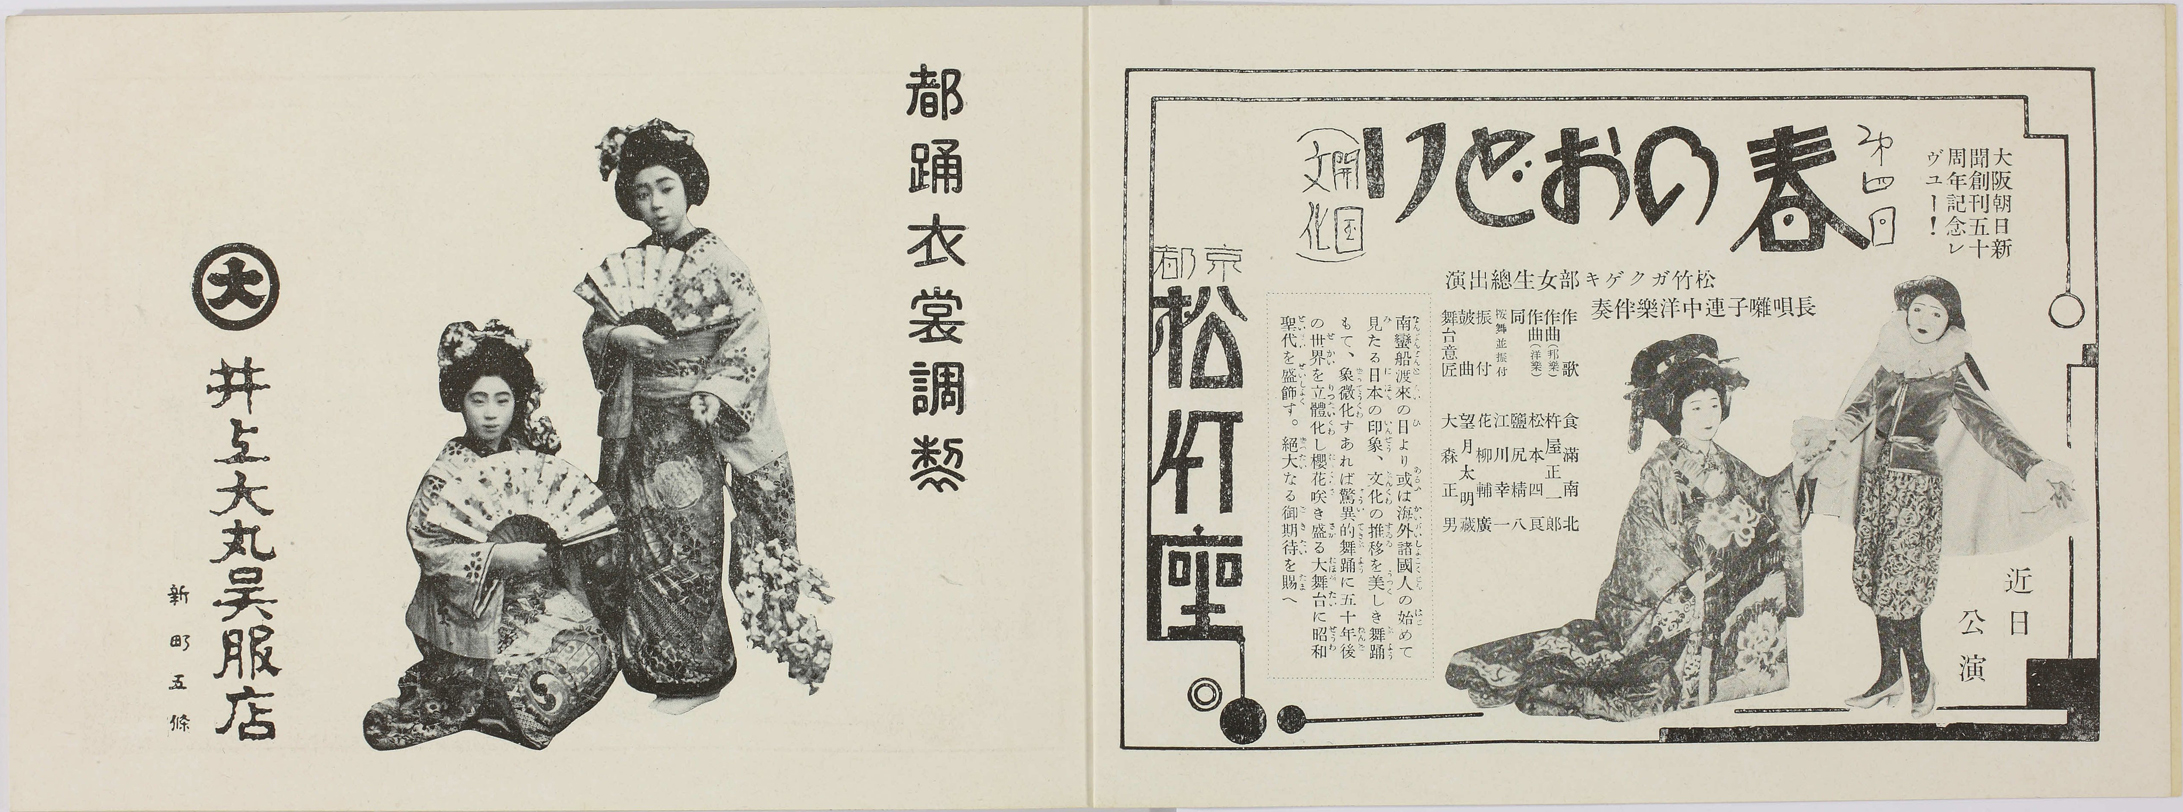 大阪朝日新
聞創刊五十
周年記念レ
ヴユー！
第四回
春のおどり
(開国
文化)
松竹ガクゲキ部女生總出演
長唄囃子連中洋樂伴奏
作歌 食滿南北
作曲(邦樂) 杵屋正一郎
作曲(洋樂) 松本四良
同 鹽尻精八
振舞並振付 江川幸一
振付 花柳輔廣
鼓曲 望月太明藏
舞台意匠 大森正男
南蠻船渡來の日より或は海外諸國人の始めて
見たる日本の印象、文化の推移を美しき舞踊
もて、象徴化すあれば驚異的舞踊に五十年後
の世界を立體化し櫻花咲き盛る大舞台に昭和
聖代を盛飾す。絕大なる御期待を賜へ
近日
公演
京都
松竹座
都踊衣裳調製
大
井上大丸呉服店
新町五條